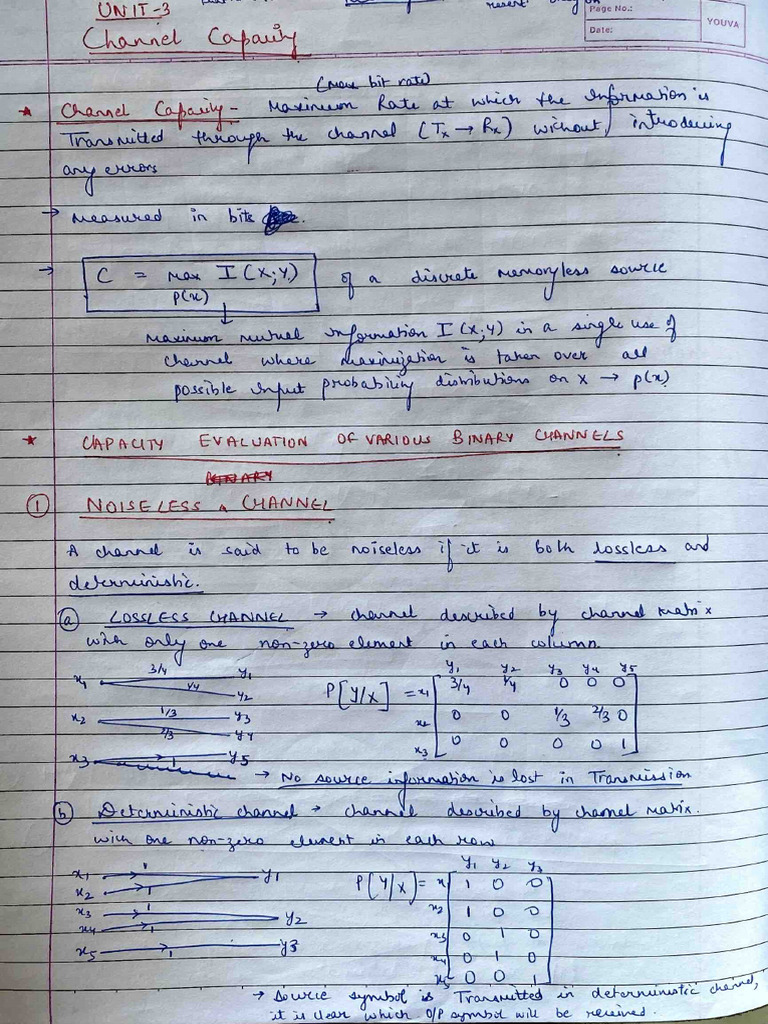 UNIT-3
Page No.:
Date:
YOUVA
Channel Capacity
(max bit rate)
* Channel Capacity - Maximum Rate at which the information is
Transmitted through the channel (Tx → Rx) without introducing
any errors
→ measured in bits
→ C = max I (X;Y) of a discrete memoryless source
p(x)
↓
maximum mutual information I (X;Y) in a single use of
channel where maximization is taken over all
possible input probability distributions on X → p(x)
* CAPACITY EVALUATION OF VARIOUS BINARY CHANNELS
① NOISELESS CHANNEL
A channel is said to be noiseless if it is both lossless and
deterministic.
ⓐ LOSSLESS CHANNEL → channel described by channel matrix
with only one non-zero element in each column.
x1 3/4 y1
1/4 y2
x2 1/3 y3
2/3 y4
x3 1 y5
y1 y2 y3 y4 y5
P[Y/X] = x1 3/4 1/4 0 0 0
x2 0 0 1/3 2/3 0
x3 0 0 0 0 1
→ No source information is lost in Transmission
ⓑ Deterministic channel → channel described by channel matrix.
with one non-zero element in each row
x1 1 y1
x2 1
x3 1 y2
x4 1
x5 1 y3
y1 y2 y3
P[Y/X] = x1 1 0 0
x2 1 0 0
x3 0 1 0
x4 0 1 0
x5 0 0 1
→ Source symbol is Transmitted in deterministic channel,
it is clear which O/P symbol will be received.